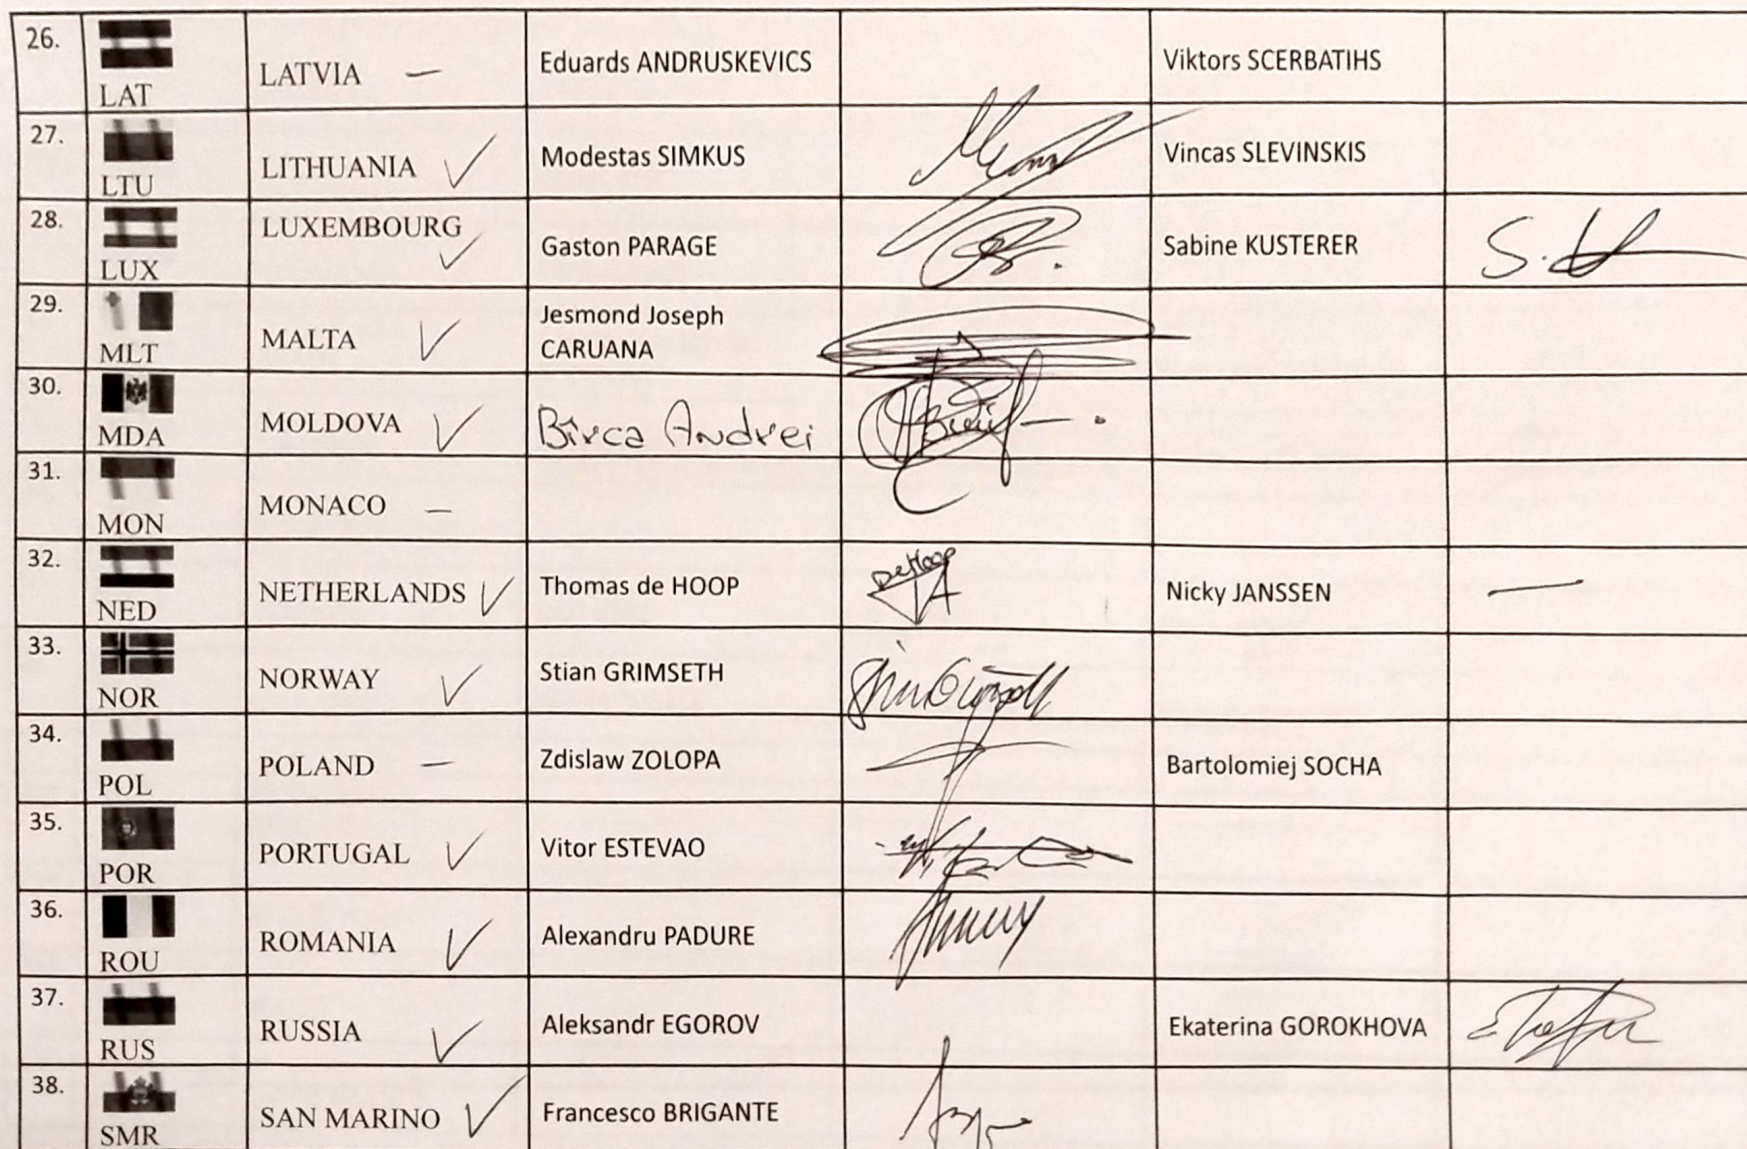 26. LAT LATVIA — Eduards ANDRUSKEVICS Viktors SCERBATIHS
27. LTU LITHUANIA ✓ Modestas SIMKUS Vincas SLEVINSKIS
28. LUX LUXEMBOURG ✓ Gaston PARAGE Sabine KUSTERER
29. MLT MALTA ✓ Jesmond Joseph
CARUANA
30. MDA MOLDOVA ✓ Bîrca Andrei
31. MON MONACO —
32. NED NETHERLANDS ✓ Thomas de HOOP De Hoop Nicky JANSSEN —
33. NOR NORWAY ✓ Stian GRIMSETH
34. POL POLAND — Zdislaw ZOLOPA Bartolomiej SOCHA
35. POR PORTUGAL ✓ Vitor ESTEVAO
36. ROU ROMANIA ✓ Alexandru PADURE
37. RUS RUSSIA ✓ Aleksandr EGOROV Ekaterina GOROKHOVA
38. SMR SAN MARINO ✓ Francesco BRIGANTE